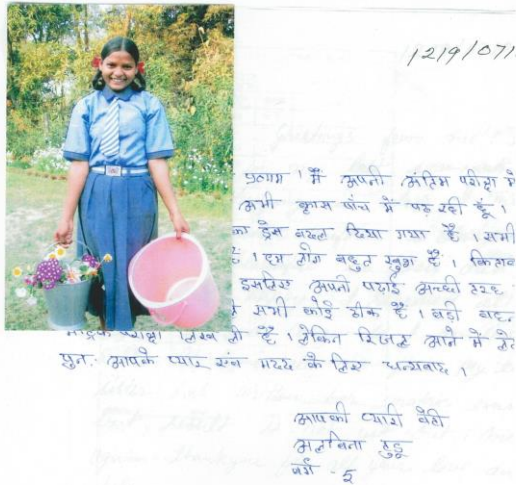 12/9/07
प्रणाम । मैं अपनी अंतिम परीक्षा में
अभी क्लास पाँच में पढ़ रही हूँ ।
का ड्रेस बदल दिया गया है । सभी
हैं । हम लोग बहुत खुश हैं । किताब
इसलिए अपनी पढ़ाई अच्छी तरह
सभी कोई ठीक है । बड़ी बहन
परीक्षा लिख ली है । लेकिन रिजल्ट आने में
पुन: आपके प्यार एंव मदद के लिए धन्यवाद ।
आपकी प्यारी बेटी
मलबिना टुडू
वर्ग - 5